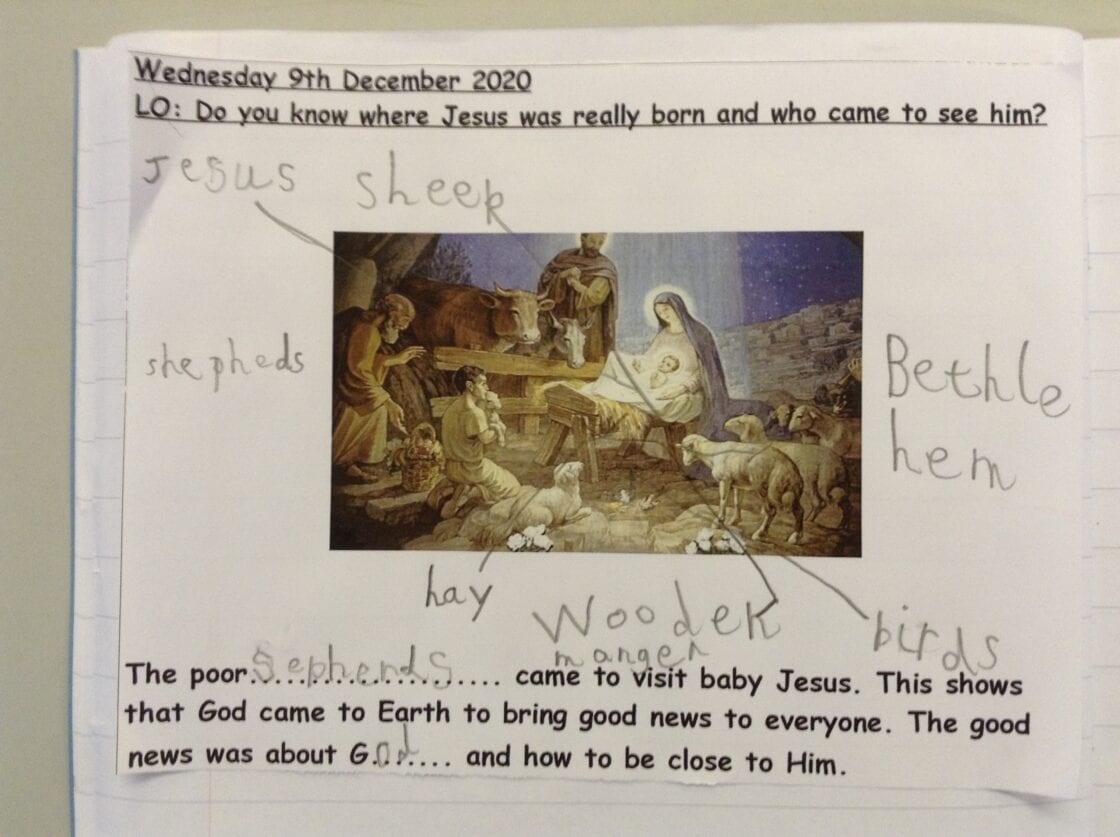 Wednesday 9th December 2020
LO: Do you know where Jesus was really born and who came to see him?
Jesus sheep
shepheds
Bethle
hem
hay
Wooden
manger
birds
The poor Sepherds.................... came to visit baby Jesus. This shows
that God came to Earth to bring good news to everyone. The good
news was about God....... and how to be close to Him.